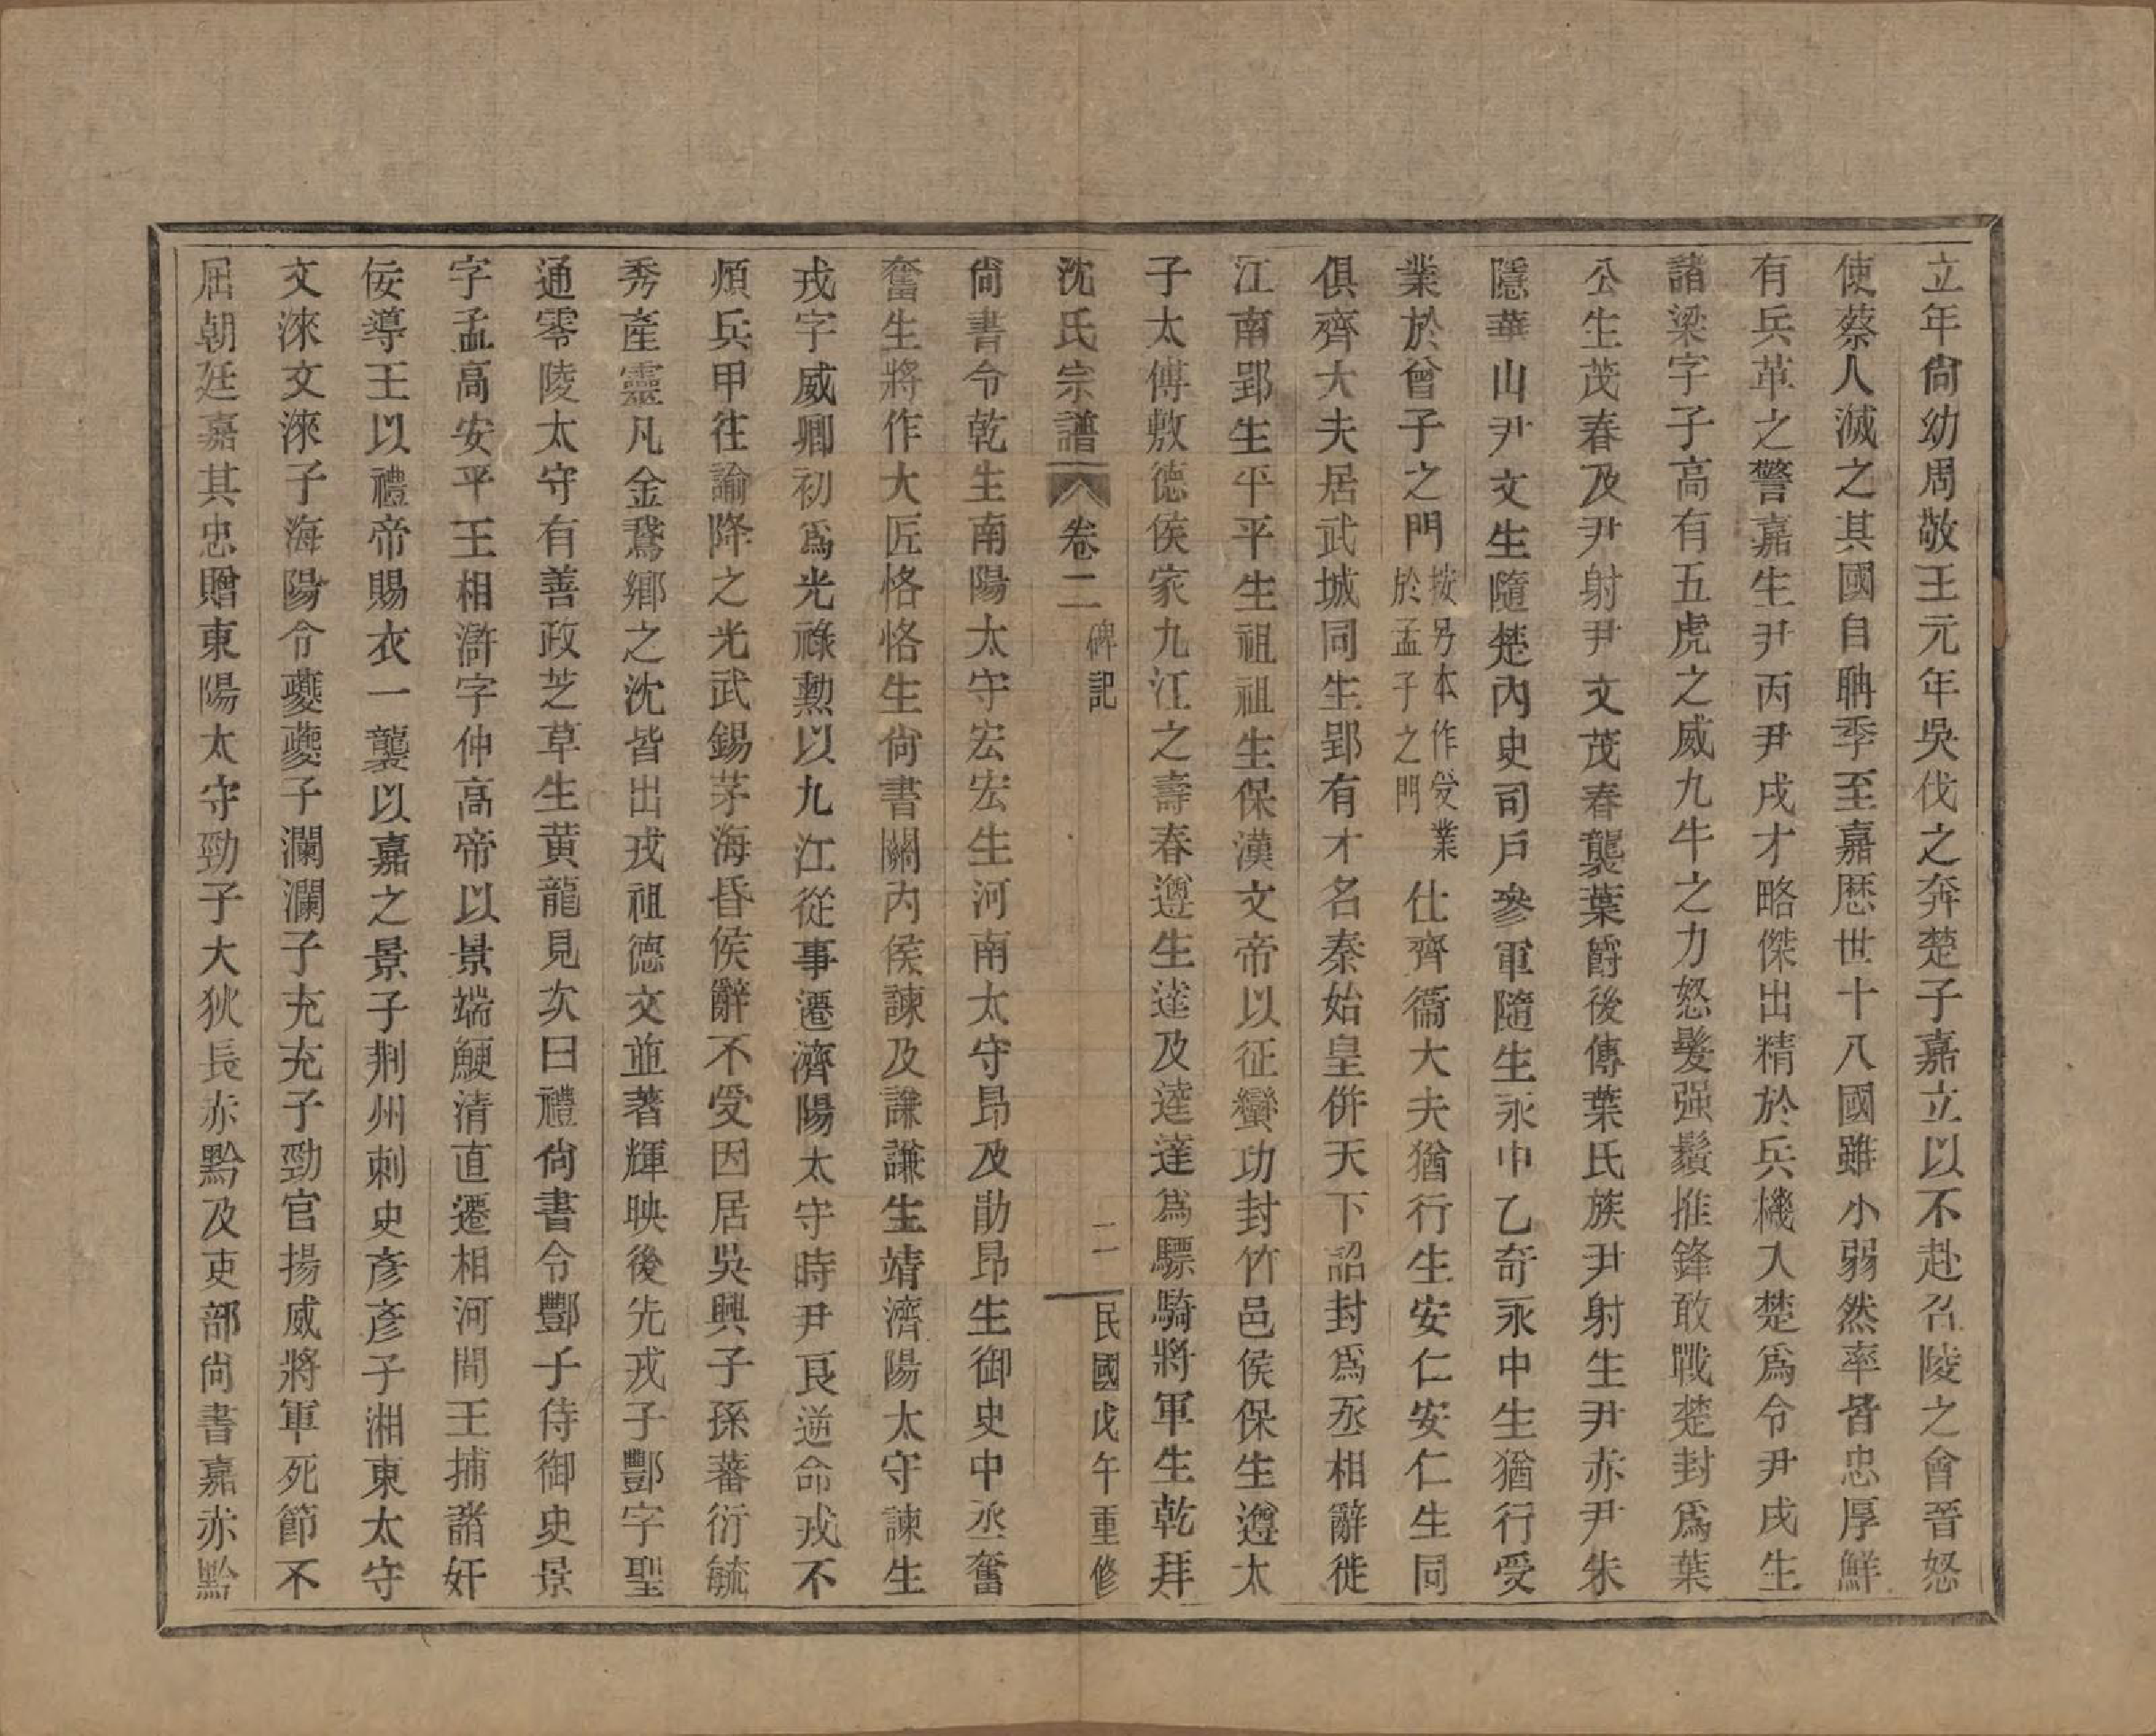 立年尙幼周敬王元年吳伐之奔楚子嘉立以不赴召陵之會晉怒
使蔡人滅之其國自聃季至嘉歷世十八國雖小弱然率皆忠厚鮮
有兵革之警嘉生尹丙尹戌才略傑出精於兵機入楚爲令尹戌生
諸梁字子高有五虎之威九牛之力怒髮强鬚推鋒敢戰楚封爲葉
公生茂春及尹射尹文茂春襲葉爵後傳葉氏族尹射生尹赤尹朱
隱華山尹文生隨楚內史司戶參軍隨生永中乙奇永中生猶行受
業於曾子之門按另本作受業於孟子之門仕齊衞大夫猶行生安仁安仁生同
俱齊大夫居武城同生郢有才名秦始皇併天下詔封爲丞相辭徙
江南郢生平平生祖祖生保漢文帝以征蠻功封竹邑侯保生遵太
子太傅敷德侯家九江之壽春遵生達及達達爲驃騎將軍生乾拜
沈氏宗譜 卷二 碑記 二 民國戊午重修
尙書令乾生南陽太守宏宏生河南太守昂及勛昂生御史中丞奮
奮生將作大匠恪恪生尙書關內侯諫及謙謙生靖濟陽太守諫生
戎字威卿初爲光祿勲以九江從事遷濟陽太守時尹良逆命戎不
煩兵甲往諭降之光武錫茅海昏侯辭不受因居吳興子孫蕃衍毓
秀產靈凡金鵞鄕之沈皆出戎祖德文並著輝映後先戎子酆字聖
通零陵太守有善政芝草生黄龍見次曰禮尙書令酆子侍御史景
字孟高安平王相滸字仲高帝以景端鯁清直遷相河間王捕諸奸
佞導王以禮帝賜衣一襲以嘉之景子荆州刺史彥彥子湘東太守
文淶文淶子海陽令夔夔子瀾瀾子充充子勁官揚威將軍死節不
屈朝廷嘉其忠贈東陽太守勁子大狄長赤黔及吏部尙書嘉赤黔